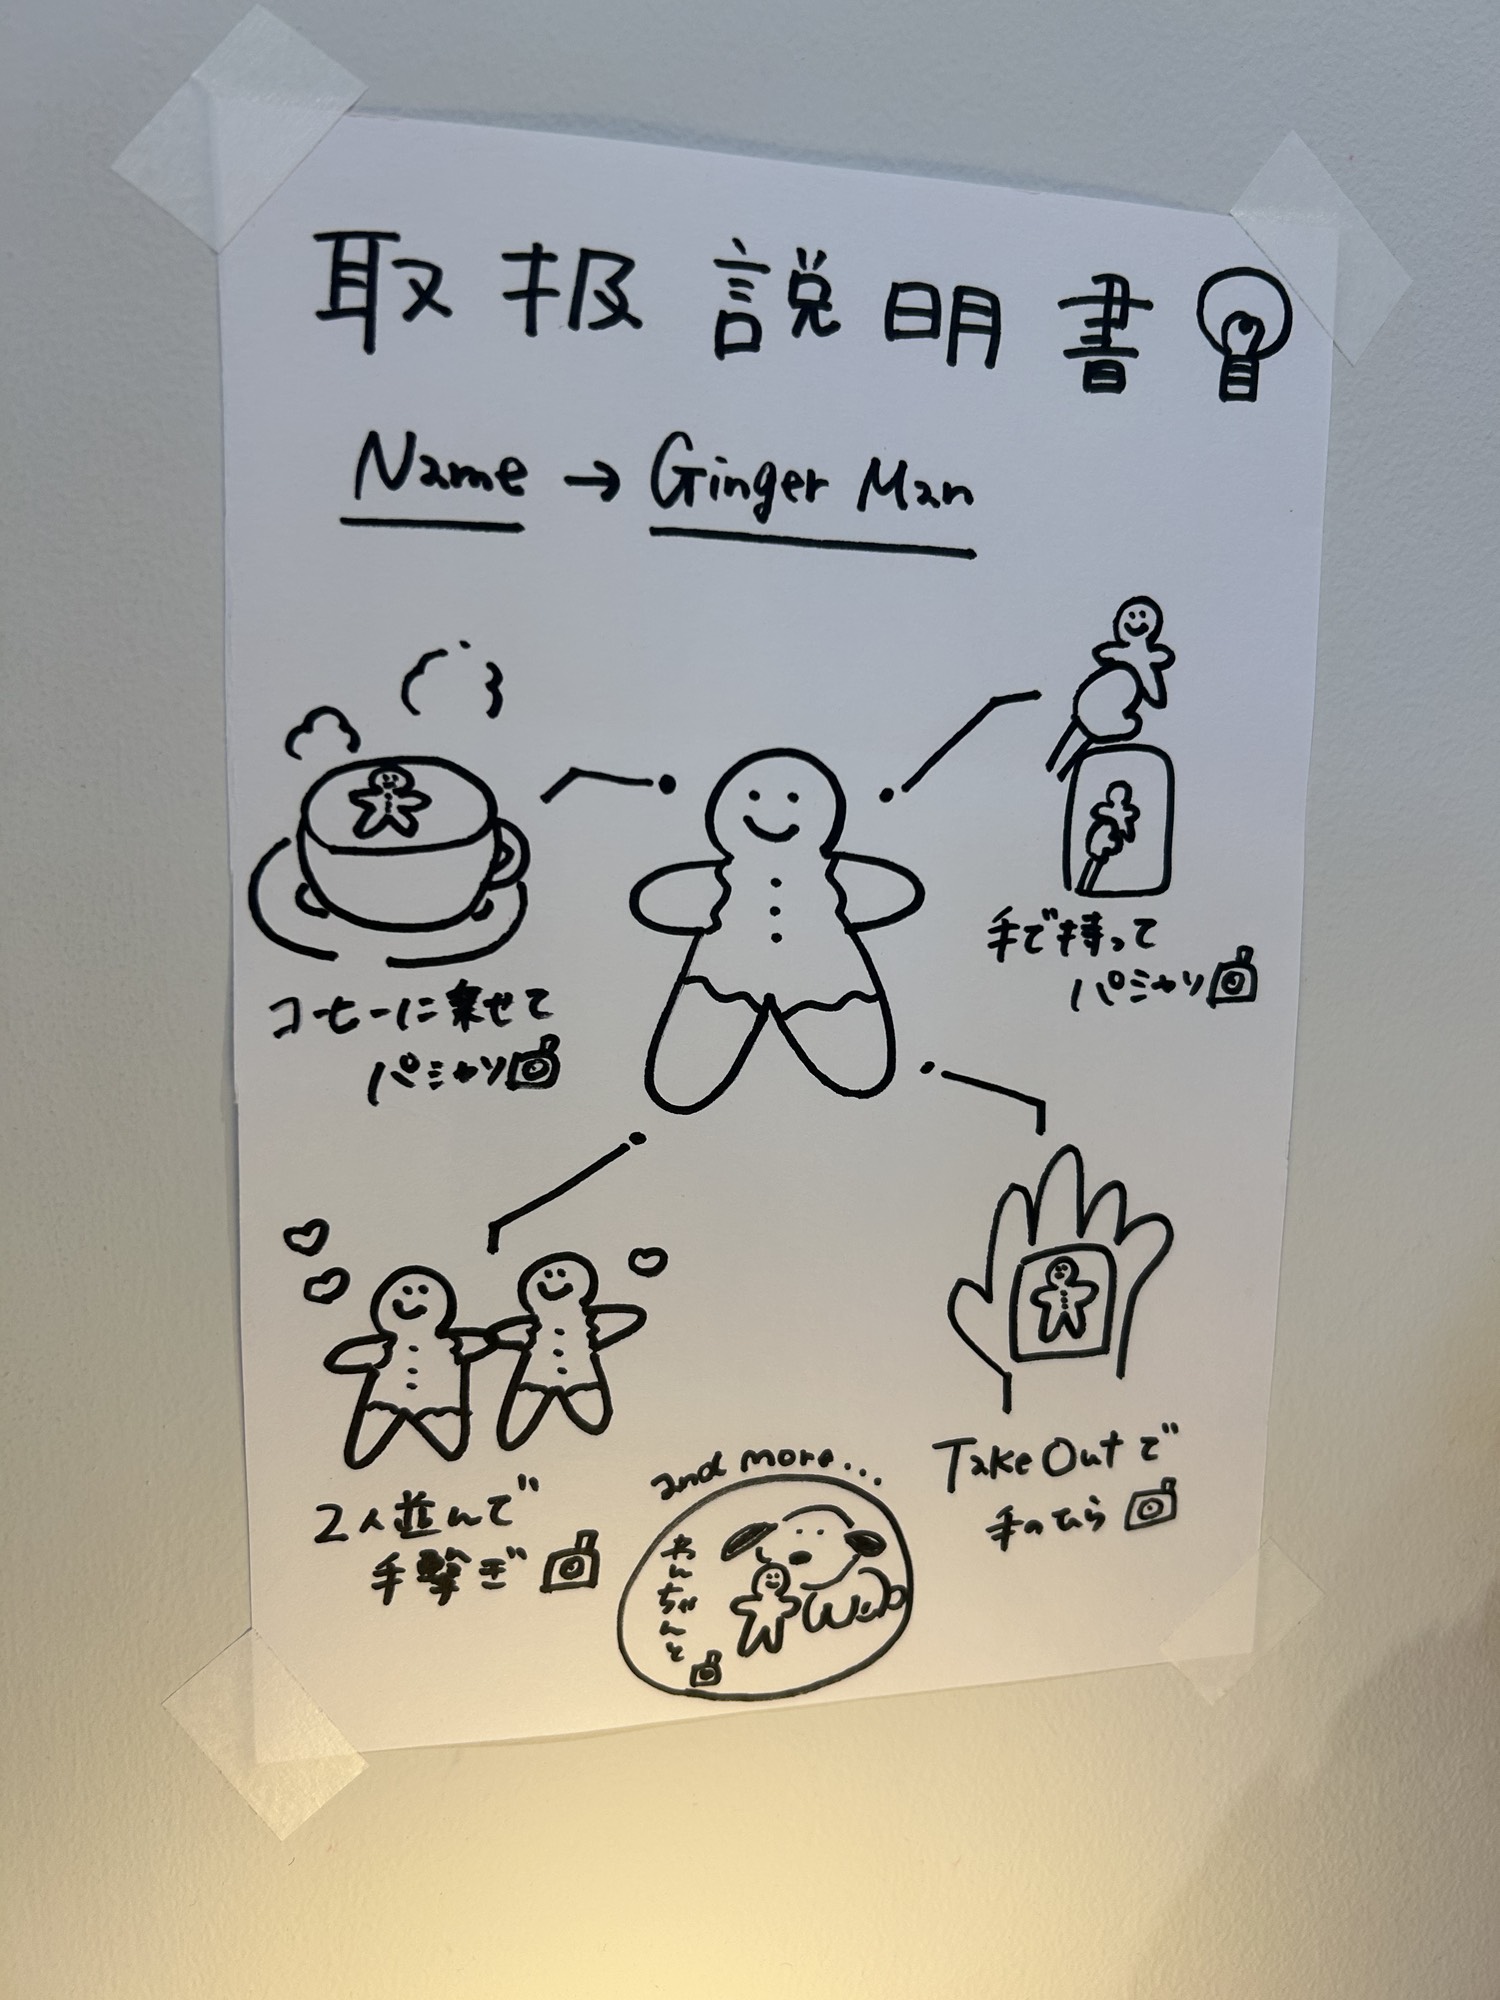 取扱説明書
Name → Ginger Man
コーヒーに乗せて
パシャリ
手で持って
パシャリ
2人並んで
手繋ぎ
Take Outで
手のひら
and more...
わんちゃんと